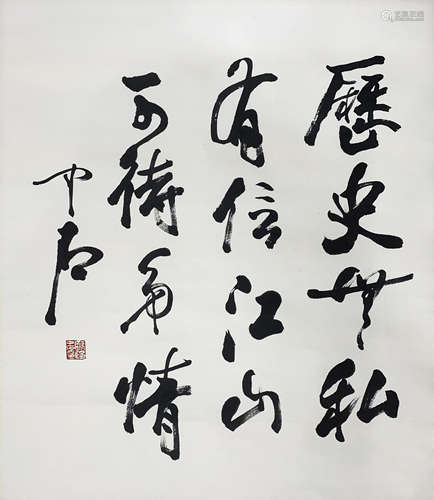 歷史無私
有信江山
可待多情
中石